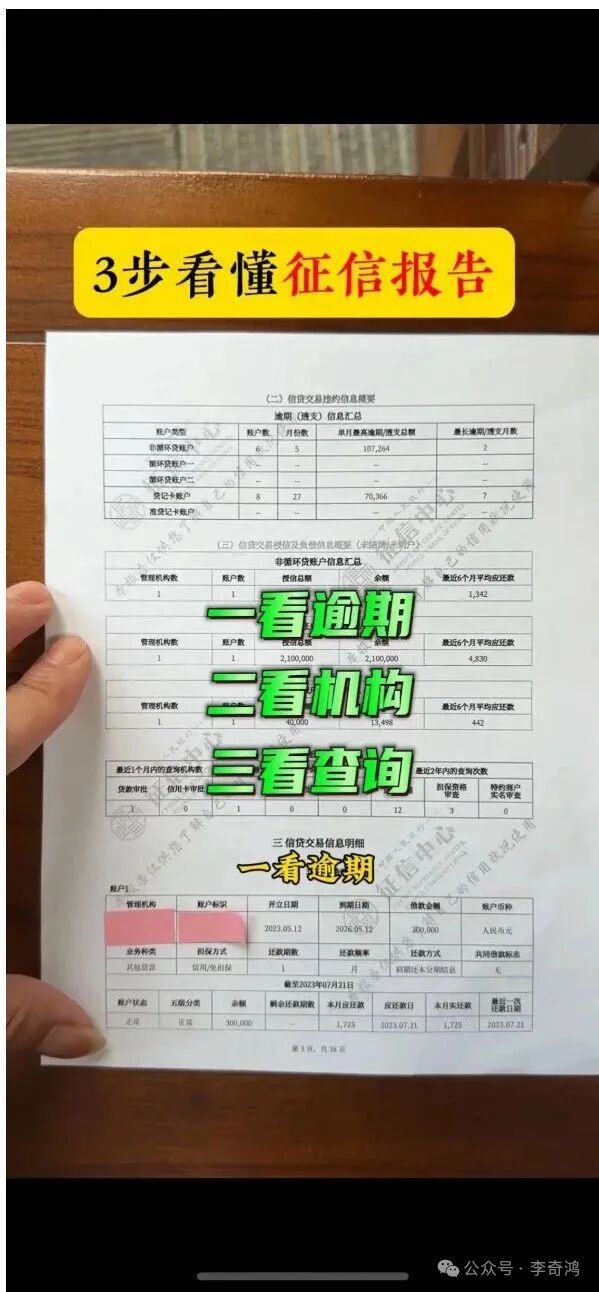 3步看懂征信报告
(二) 信贷交易违约信息概要
逾期(透支)信息汇总
账户类型 账户数 月份数 单月最高逾期/透支总额 最长逾期/透支月数
非循环贷账户 6 5 107,264 2
循环贷账户一 -- -- -- --
循环贷账户二 -- -- -- --
贷记卡账户 8 27 70,366 7
准贷记卡账户 -- -- -- --
(三) 信贷交易授信及负债信息概要 (未结清/未销户)
非循环贷账户信息汇总
管理机构数 账户数 授信总额 余额 最近6个月平均应还款
1 1 1,342
一看逾期
管理机构数 账户数 授信总额 余额 最近6个月平均应还款
1 1 2,100,000 2,100,000 4,830
二看机构
管理机构数 账户数 最近6个月平均应还款
1 1 40,000 13,498 442
三看查询
最近1个月内的查询机构数 最近2年内的查询次数
贷款审批 信用卡审批 担保资格审查 特约商户实名审查
1 0 1 0 0 12 3 0
三 信贷交易信息明细
一看逾期
账户1
管理机构 账户标识 开立日期 到期日期 借款金额 账户币种
2023.05.12 2026.05.12 300,000 人民币元
业务种类 担保方式 还款期数 还款频率 还款方式 共同借款标志
其他贷款 信用/免担保 1 月 到期还本分期结息 无
截至2023年07月21日
账户状态 五级分类 余额 剩余还款期数 本月应还款 应还款日 本月实还款 最近一次还款日期
正常 正常 300,000 -- 1,725 2023.07.21 1,725 2023.07.21
第 3 页，共 38 页
征信中心
公众号 · 李奇鸿